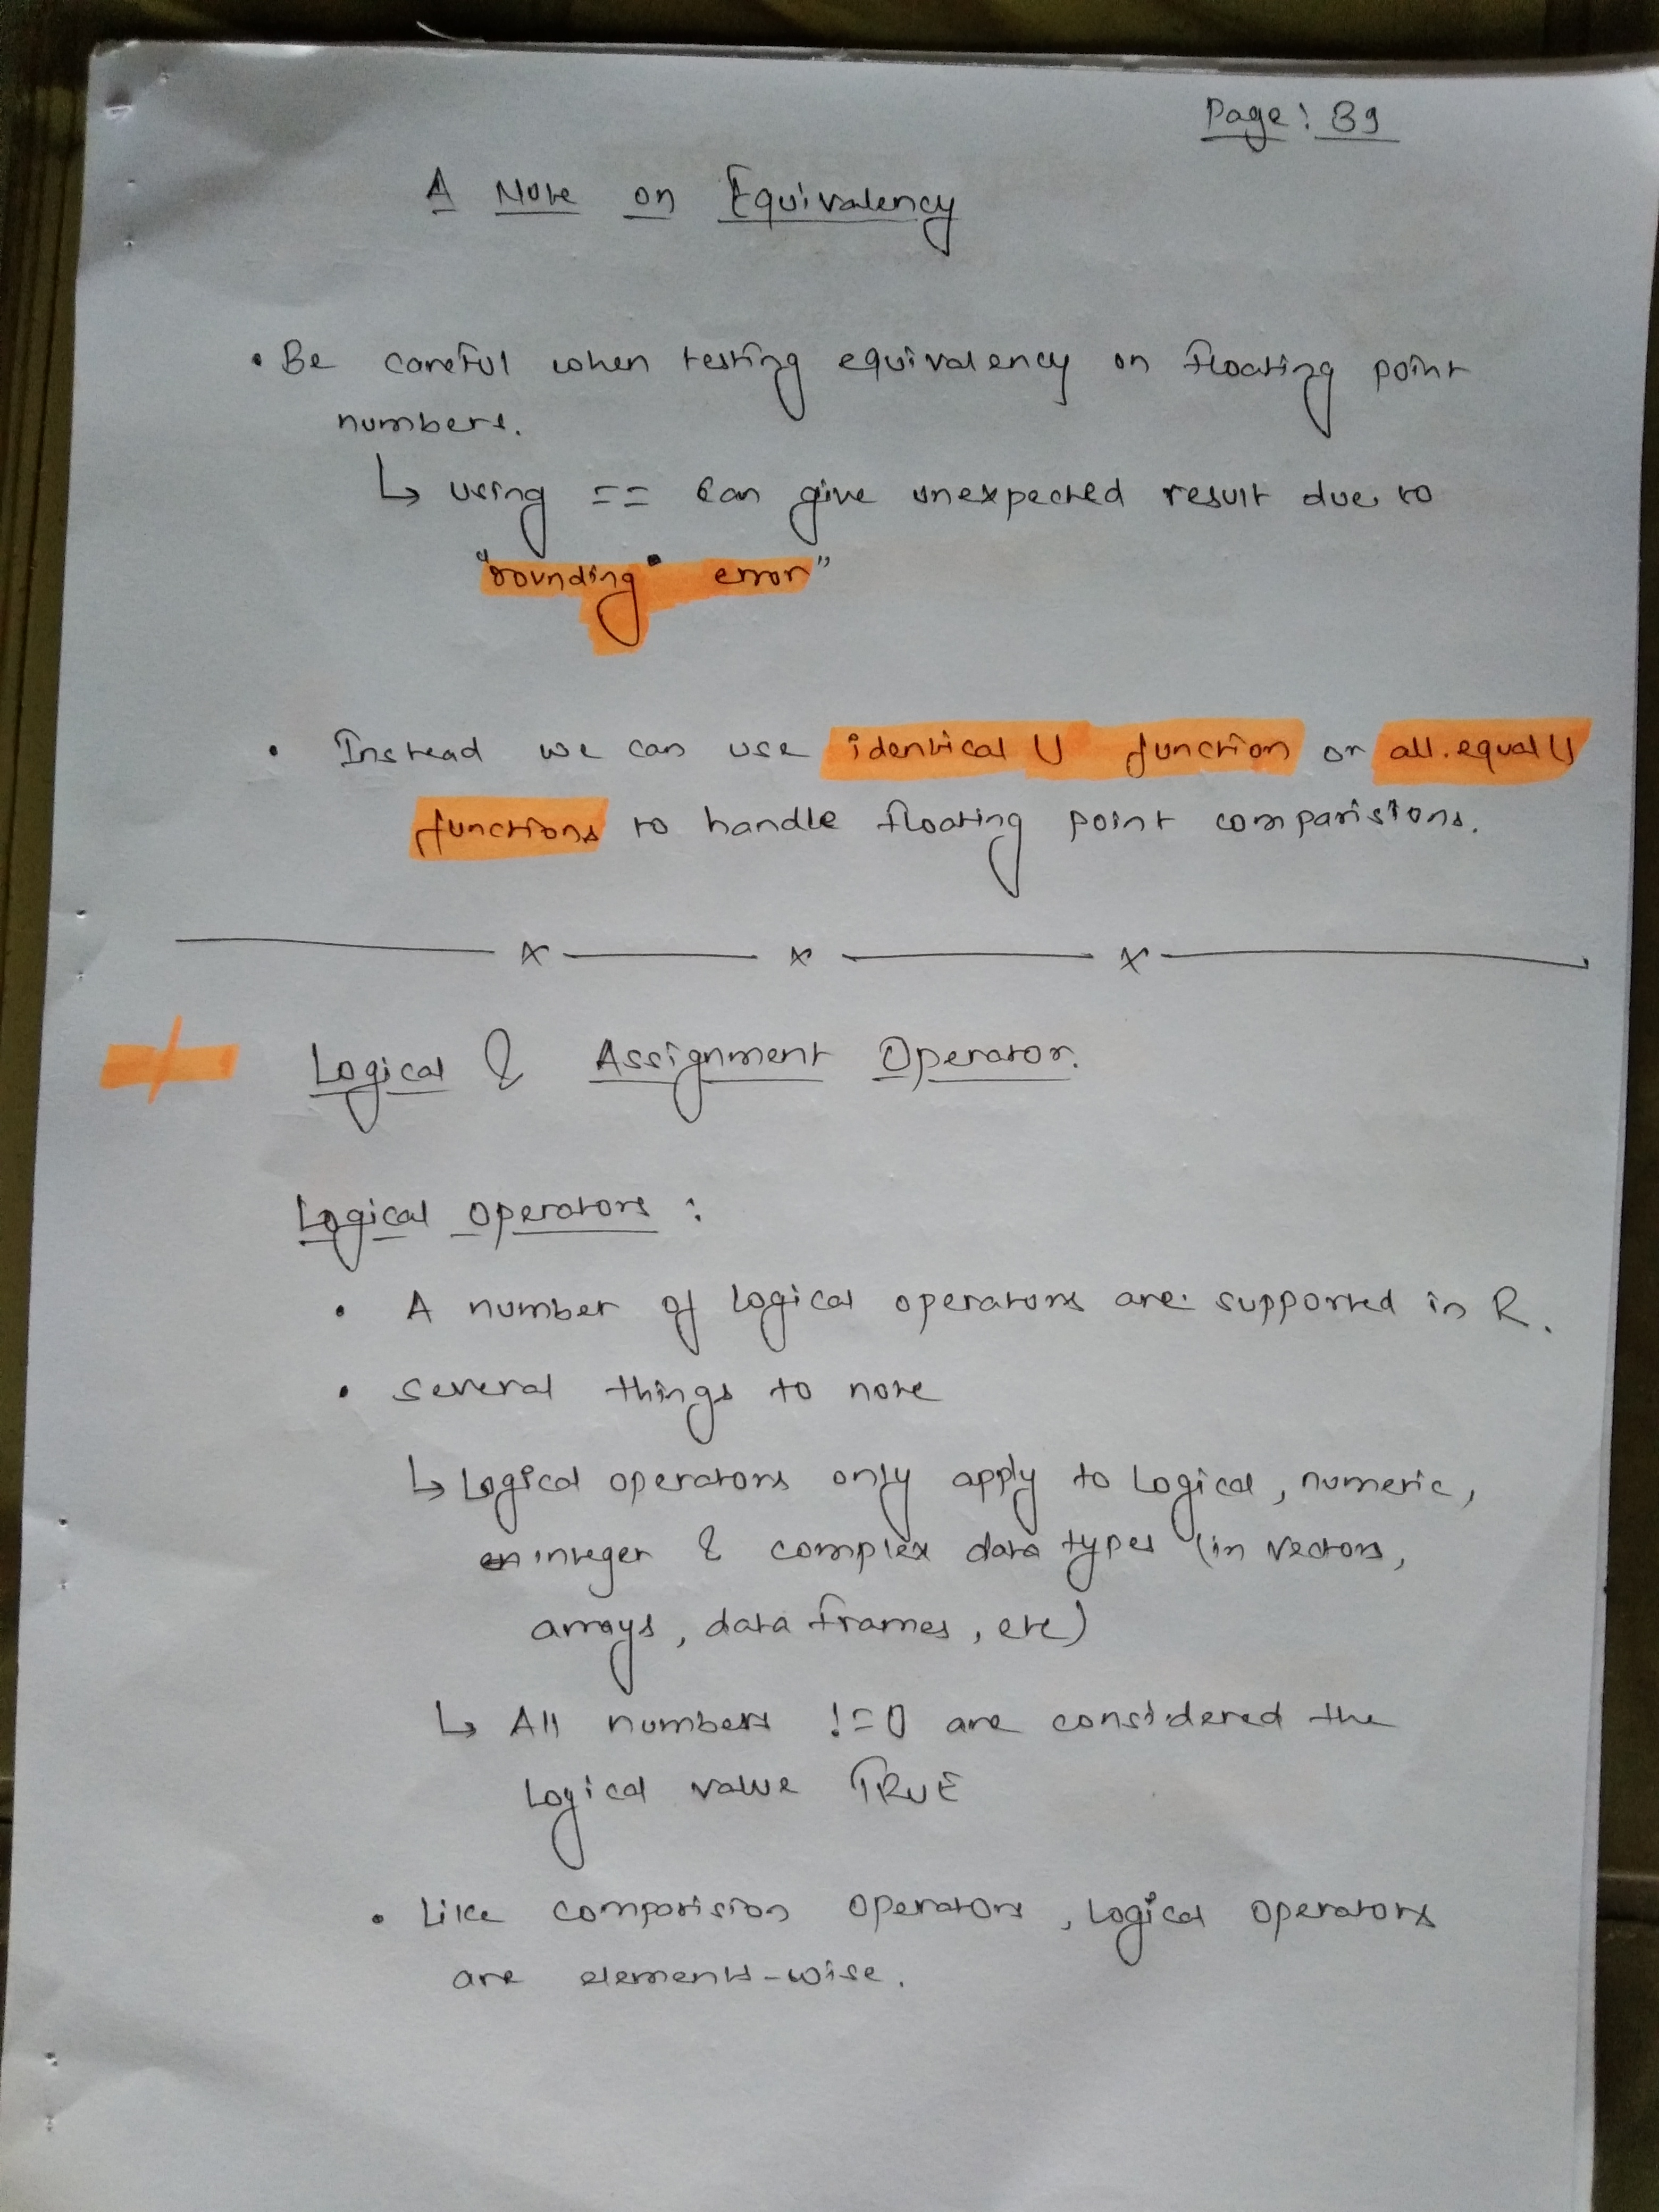 Page: 39
A Note on Equivalency
• Be careful when testing equivalency on floating point
numbers.
↳ using == can give unexpected result due to
"rounding" error"
• Instead we can use identical() function or all.equal()
functions to handle floating point comparisions.
x x x
Logical & Assignment Operator.
Logical operators :
• A number of logical operators are supported in R.
• several things to note
↳ Logical operators only apply to Logical, numeric,
integer & complex data types (in vectors,
arrays, data frames, etc)
↳ All numbers !=0 are considered the
Logical value TRUE
• Like comparision operators, Logical operators
are elements-wise.